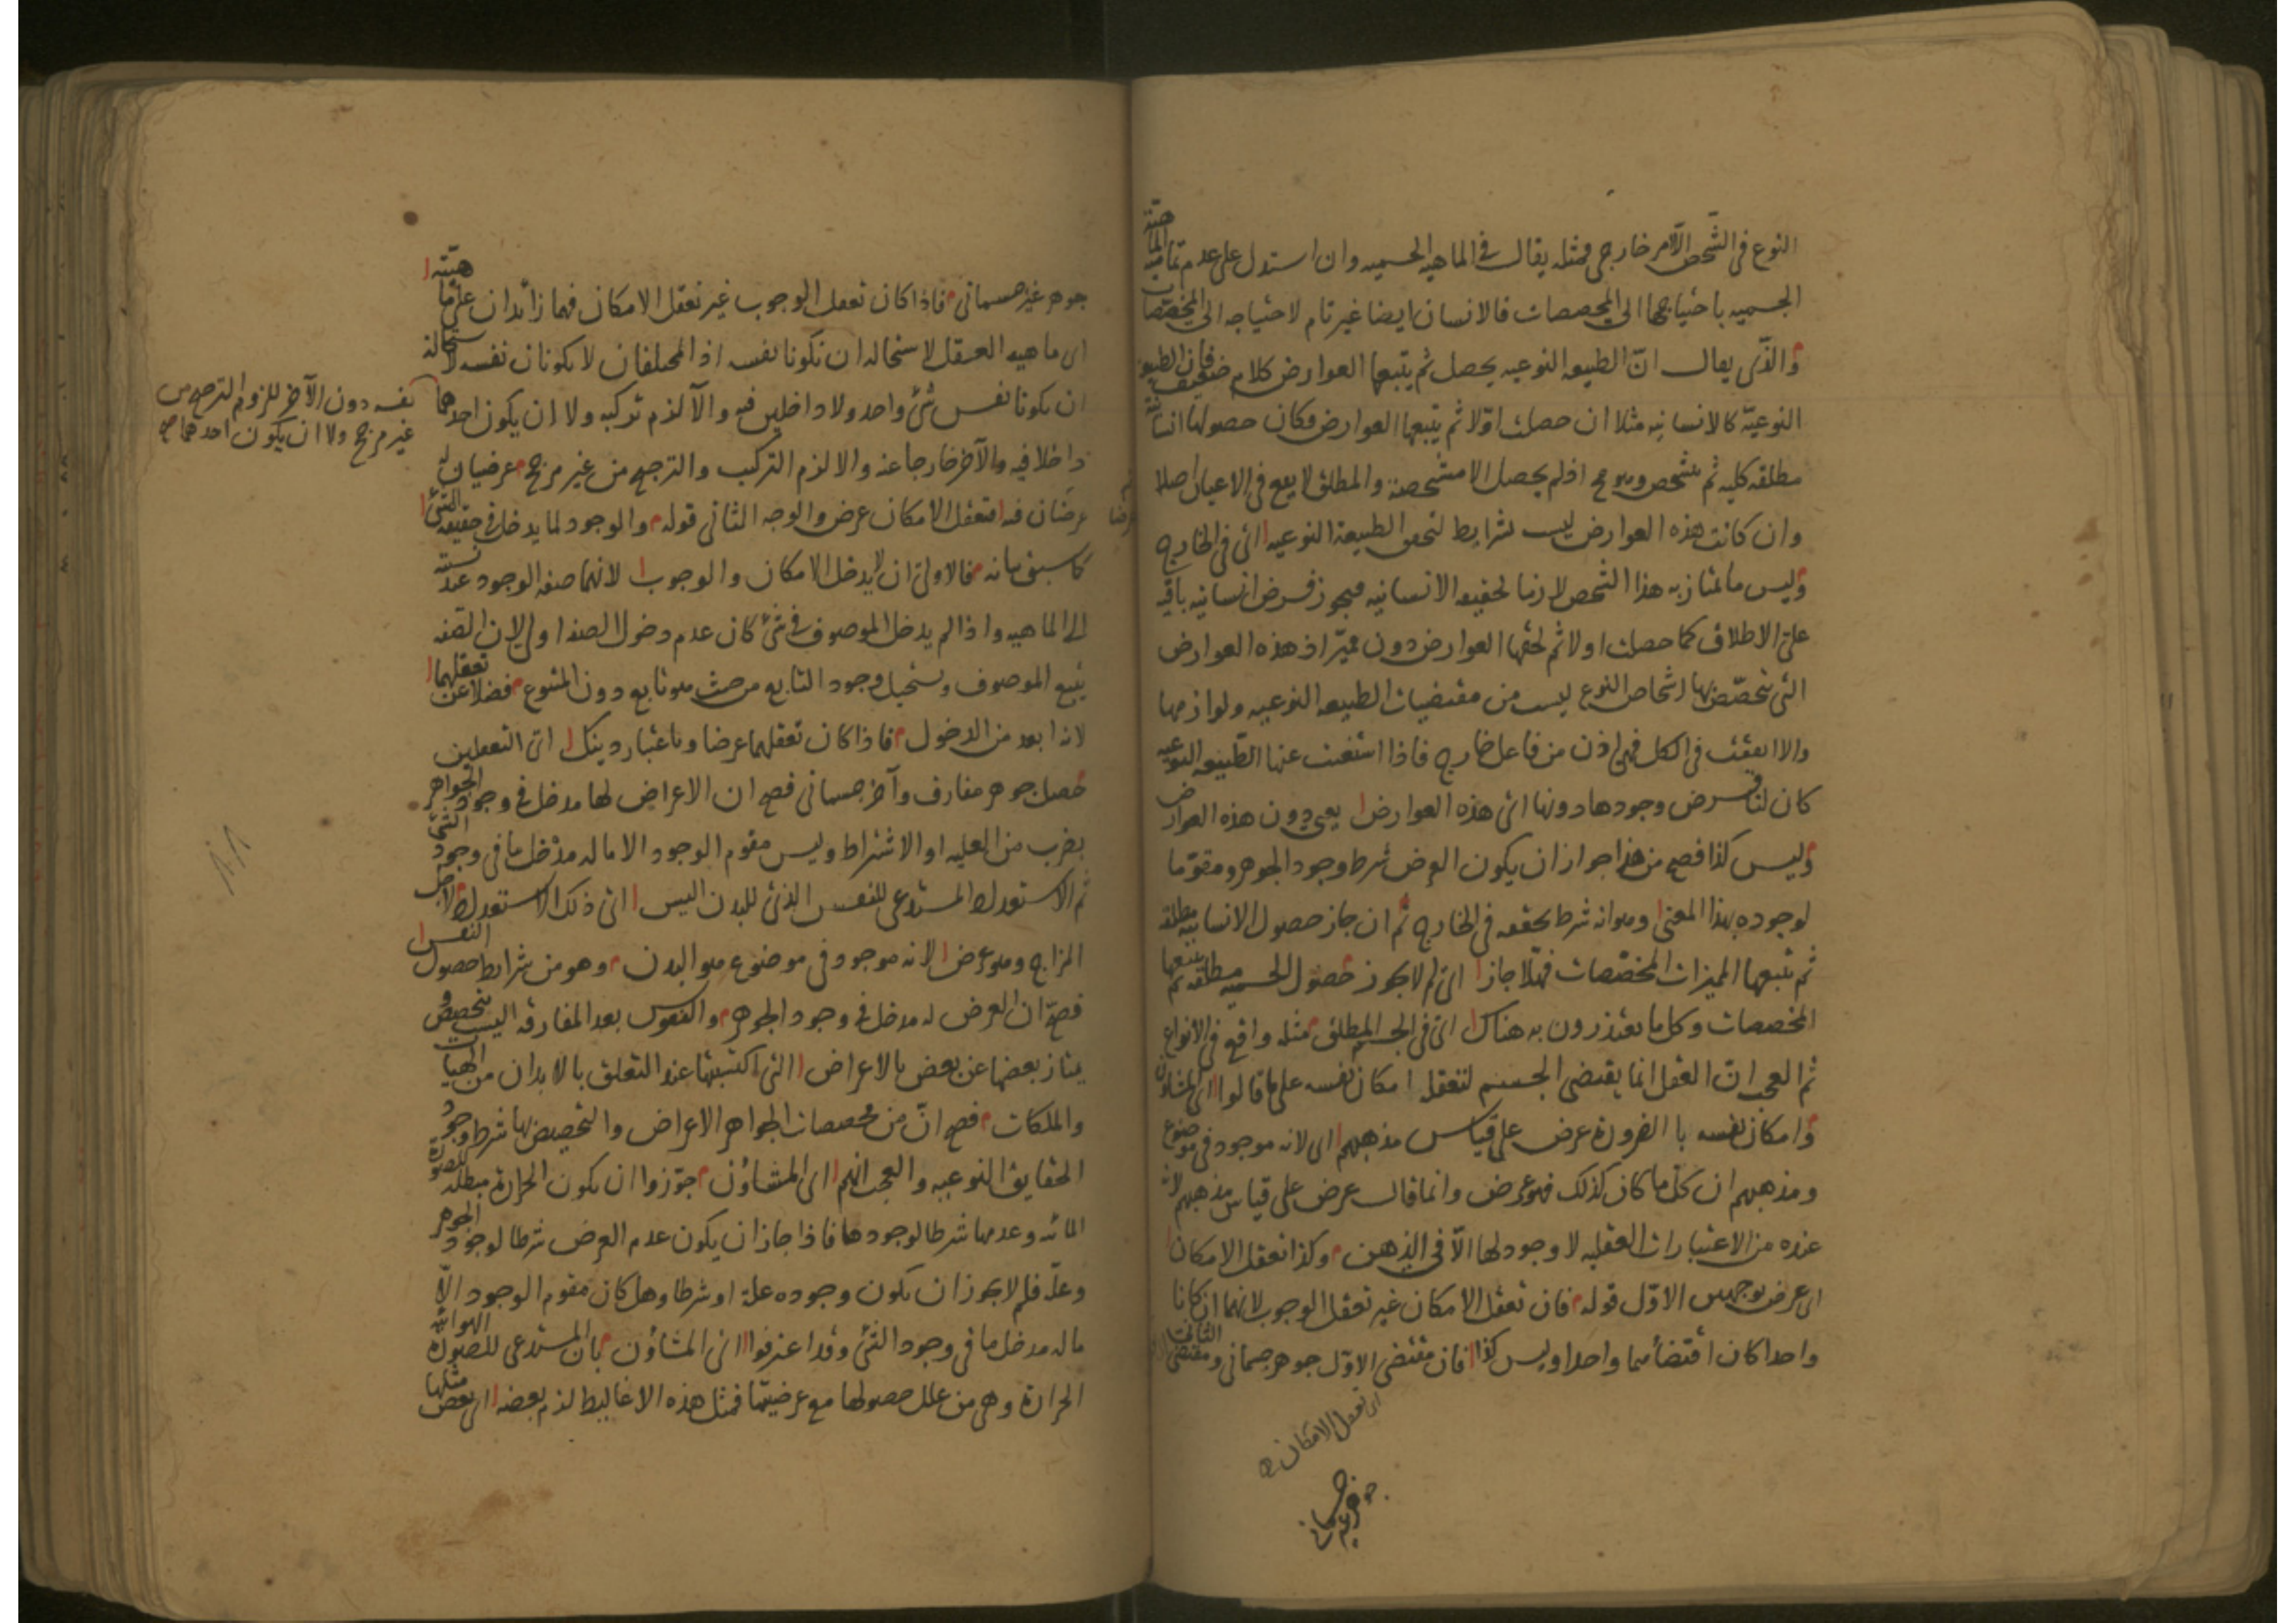 النوع فى الشخص الا لامر خارجى فمثله يقال فى الماهيه الجسميه وان استدل على عدم تماميه الماهيّة
الجسميه باحتياجها الى المخصصات فالانسان ايضا غير تام لاحتياجه الى المخصصات
والذى يقال انّ الطبيعه النوعيه يحصل ثم يتبعها العوارض كلام ضعيف فان الطبيعه
النوعيّة كالانسانيه مثلا ان حصلت اوّلا ثم يتبعها العوارض فكان حصولها انسانيّة
مطلقه كليه ثم يتشخص وهو مح اذ لم يحصل الا متشخصة والمطلق لا يقع فى الاعيان اصلا
وان كانت هذه العوارض ليست شرايط لتحقق الطبيعة النوعيه اى فى الخارج
وليس ما يمتاز به هذا الشخص لازما لحقيقه الانسانيه فيجوز فرض انسانيه باقيه
على الاطلاق كما حصلت اولا ثم لحقها العوارض دون مميّز اذ هذه العوارض
التى تخصّص بها اشخاص النوع ليست من مقتضيات الطبيعه النوعيه ولوازمها
والا اتفقت فى الكل فهى اذن من فاعل خارج فاذا استغنت عنها الطّبيعه النوعيه
كان لنا فرض وجودها دونها اى هذه العوارض يعنى دون هذه العوارض
وليس كذا فصح من هذا جواز ان يكون العرض شرط وجود الجوهر ومقوّما
لوجوده بهذا المعنى وهو انه شرط تحققه فى الخارج ثم ان جاز حصول الانسانيه مطلقه
ثم تتبعها المميزات المخصّصات فهلّا جاز اى لم لا يجوز حصول الجسميه مطلقه ثم يتبعها
المخصصات وكل ما يعتذرون به هناك اى فى الجسم المطلق مثله واقع فى الانواع
ثم العجب انّ العقل انما يقتضى الجسم لتعقل امكان نفسه على ما قالوا اى المشاؤن
وامكان نفسه بالضرورة عرض على قياس مذهبهم اى لانه موجود فى موضوع
ومذهبهم ان كل ما كان كذلك فهو عرض وانما قال عرض على قياس مذهبهم لانه
عنده من الاعتبارات العقليه لا وجود لها الّا فى الذهن وكذا تعقل الامكان
اى عرض بوجهين الاوّل قوله فان تعقل الامكان غير تعقل الوجوب لانهما ان كانا
واحدا كان اقتضائهما واحدا وليس كذا فان مقتضى الاوّل جوهر جسمانى ومقتضى الثانى
اى تعقل الامكان
جوهر غير جسمانى
جوهر غير جسمانى فاذا كان تعقل الوجوب غير تعقل الامكان فهما زائدان على ماهيّته
اى ماهيه العقل لاستحاله ان تكونا نفسه اذ المختلفان لا يكونان نفسه لاستحالة
ان يكونا نفس شئ واحد ولا داخلين فيه والّا لزم تركبه ولا ان يكون احدهما
نفسه دون الآخر للزوم الترجيح من
غير مرجح ولا ان يكون احدهما
داخلا فيه والآخر خارجا عنه والا لزم التركيب والترجيح من غير مرجح عرضيان له
عرضان فيه فتعقل الامكان عرض والوجه الثانى قوله والوجود لما لم يدخل فى حقيقه الشئ
كما سبق بيانه فالاولى ان لا يدخل الامكان والوجوب لانهما صفه الوجود عند نسبته
الى الماهيه واذا لم يدخل الموصوف فى شئ كان عدم دخول الصفه اولى لان الصفه
يتبع الموصوف ويستحيل وجود التابع من حيث هو تابع دون المتبوع فضلا عن تعقلهما
لانه ابعد من الدخول فاذا كان تعقلهما عرضا وباعتبار دينك اى التعقلين
حصل جوهر مفارف وآخر جسمانى فصح ان الاعراض لها مدخل فى وجود الجواهر
بضرب من العليه او الاشتراط وليس مقوم الوجود الا ما له مدخل ما فى وجود الشئ
ثم الاستعداد المستدعى للنفس الذى للبدن اليس اى ذلك الاستعداد لاجل
المزاج وهو عرض لانه موجود فى موضوع هو البدن وهو من شرايط حصول النفس
فصحّ ان العرض له مدخل فى وجود الجوهر والنفوس بعد المفارقه اليست تتخصص و
يمتاز بعضها عن بعض بالاعراض التى اكتسبتها عند التعلق بالابدان من الهيآت
والملكات فصح انّ من مخصصات الجواهر الاعراض والتخصيص بها شرط وجود
الحقايق النوعيه والعجب انهم اى المشاؤن جوّزوا ان يكون الحرارة مبطله للصورة
المائيه وعدمها شرطا لوجودها فاذا جاز ان يكون عدم العرض شرطا لوجود الجوهر
وعلّه فلم لا يجوز ان يكون وجوده علة او شرطا وهل كان مقوم الوجود الّا
ما له مدخل ما فى وجود الشئ وقد اعترفوا اى المشاؤن بان المستدعى للصورة الهوائية
الحرارة وهى من علل حصولها مع عرضيتها فمثل هذه الاغاليط لزم بعضه اى بعض مثلها